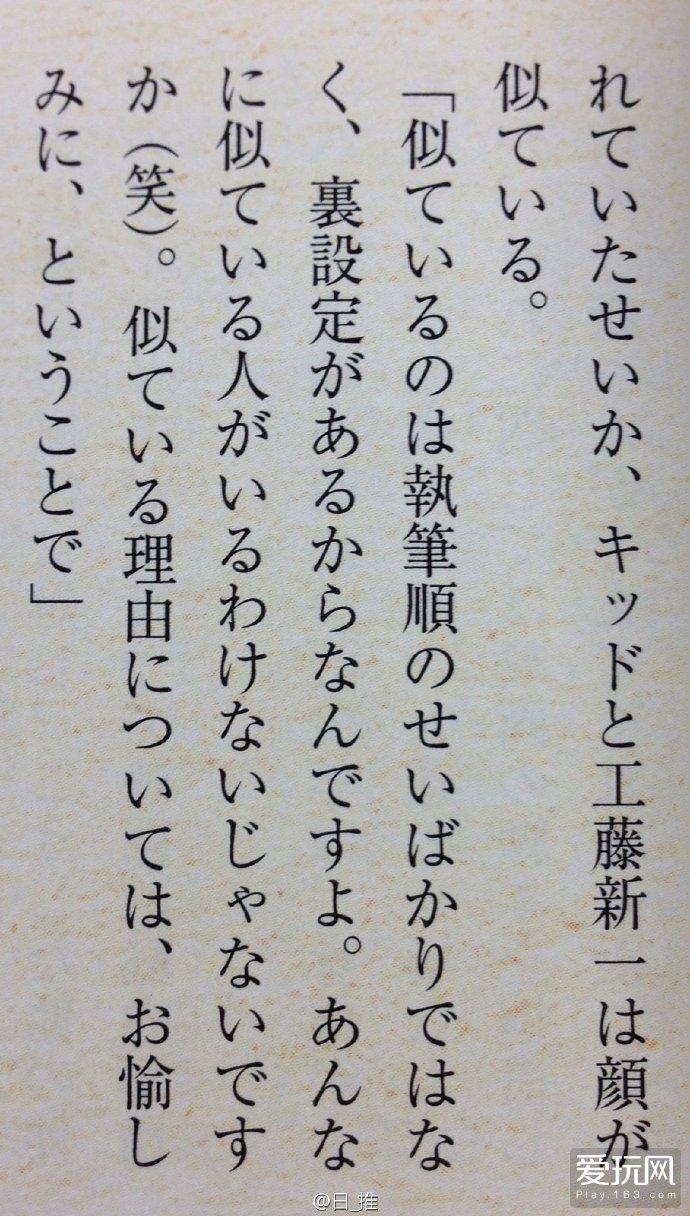 れていたせいか、キッドと工藤新一は顔が
似ている。
「似ているのは執筆順のせいばかりではな
く、裏設定があるからなんですよ。あんな
に似ている人がいるわけないじゃないです
か（笑）。似ている理由については、お愉し
みに、ということで」
爱玩网
Play.163.com
@日_推